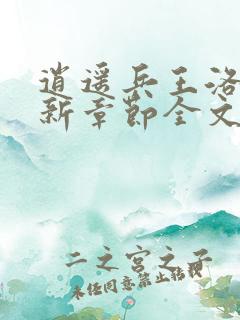 逍遥兵王洛
新章节全文
二之宫之子
未经同意禁止转载